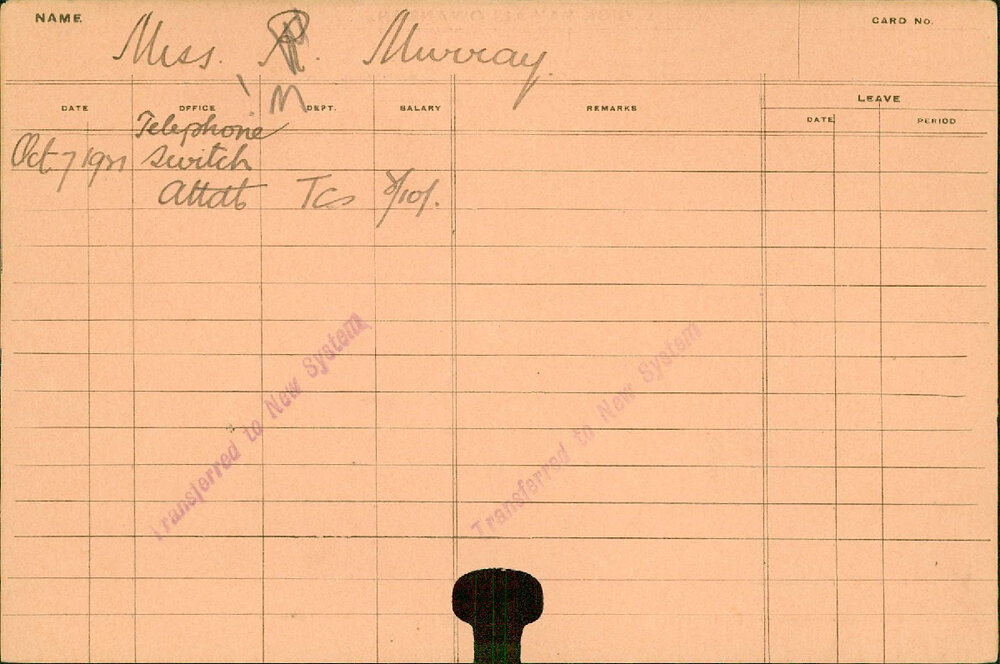 NAME
CARD NO.
Miss. R. Murray
M
DATE
OFFICE
DEPT.
SALARY
REMARKS
LEAVE
DATE
PERIOD
Telephone
Oct 7 1921 Switch
Attdt Tcs /10/.
Transferred to New System
Transferred to New System